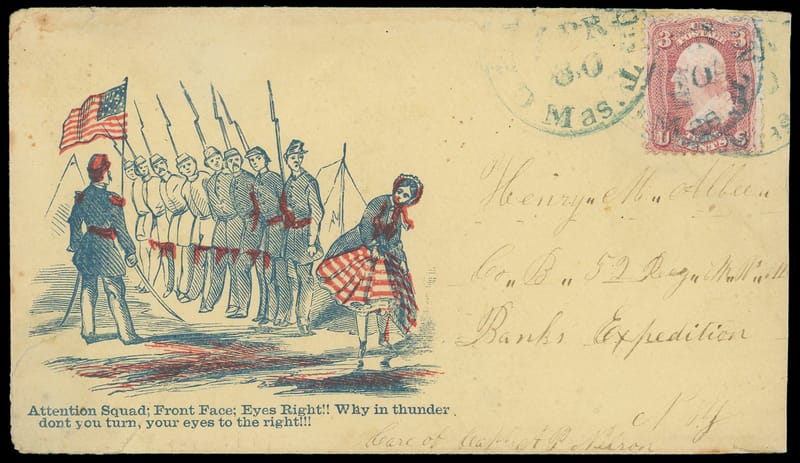 APR
30
Mas.
3 U.S. 3
POSTAGE
CENTS 3
Henry M. Albee
Co. B. 52 Reg. M.V.M
Banks Expedition
N.Y
Care of Capt A P Nelson
Attention Squad; Front Face; Eyes Right!! Why in thunder
dont you turn, your eyes to the right!!!